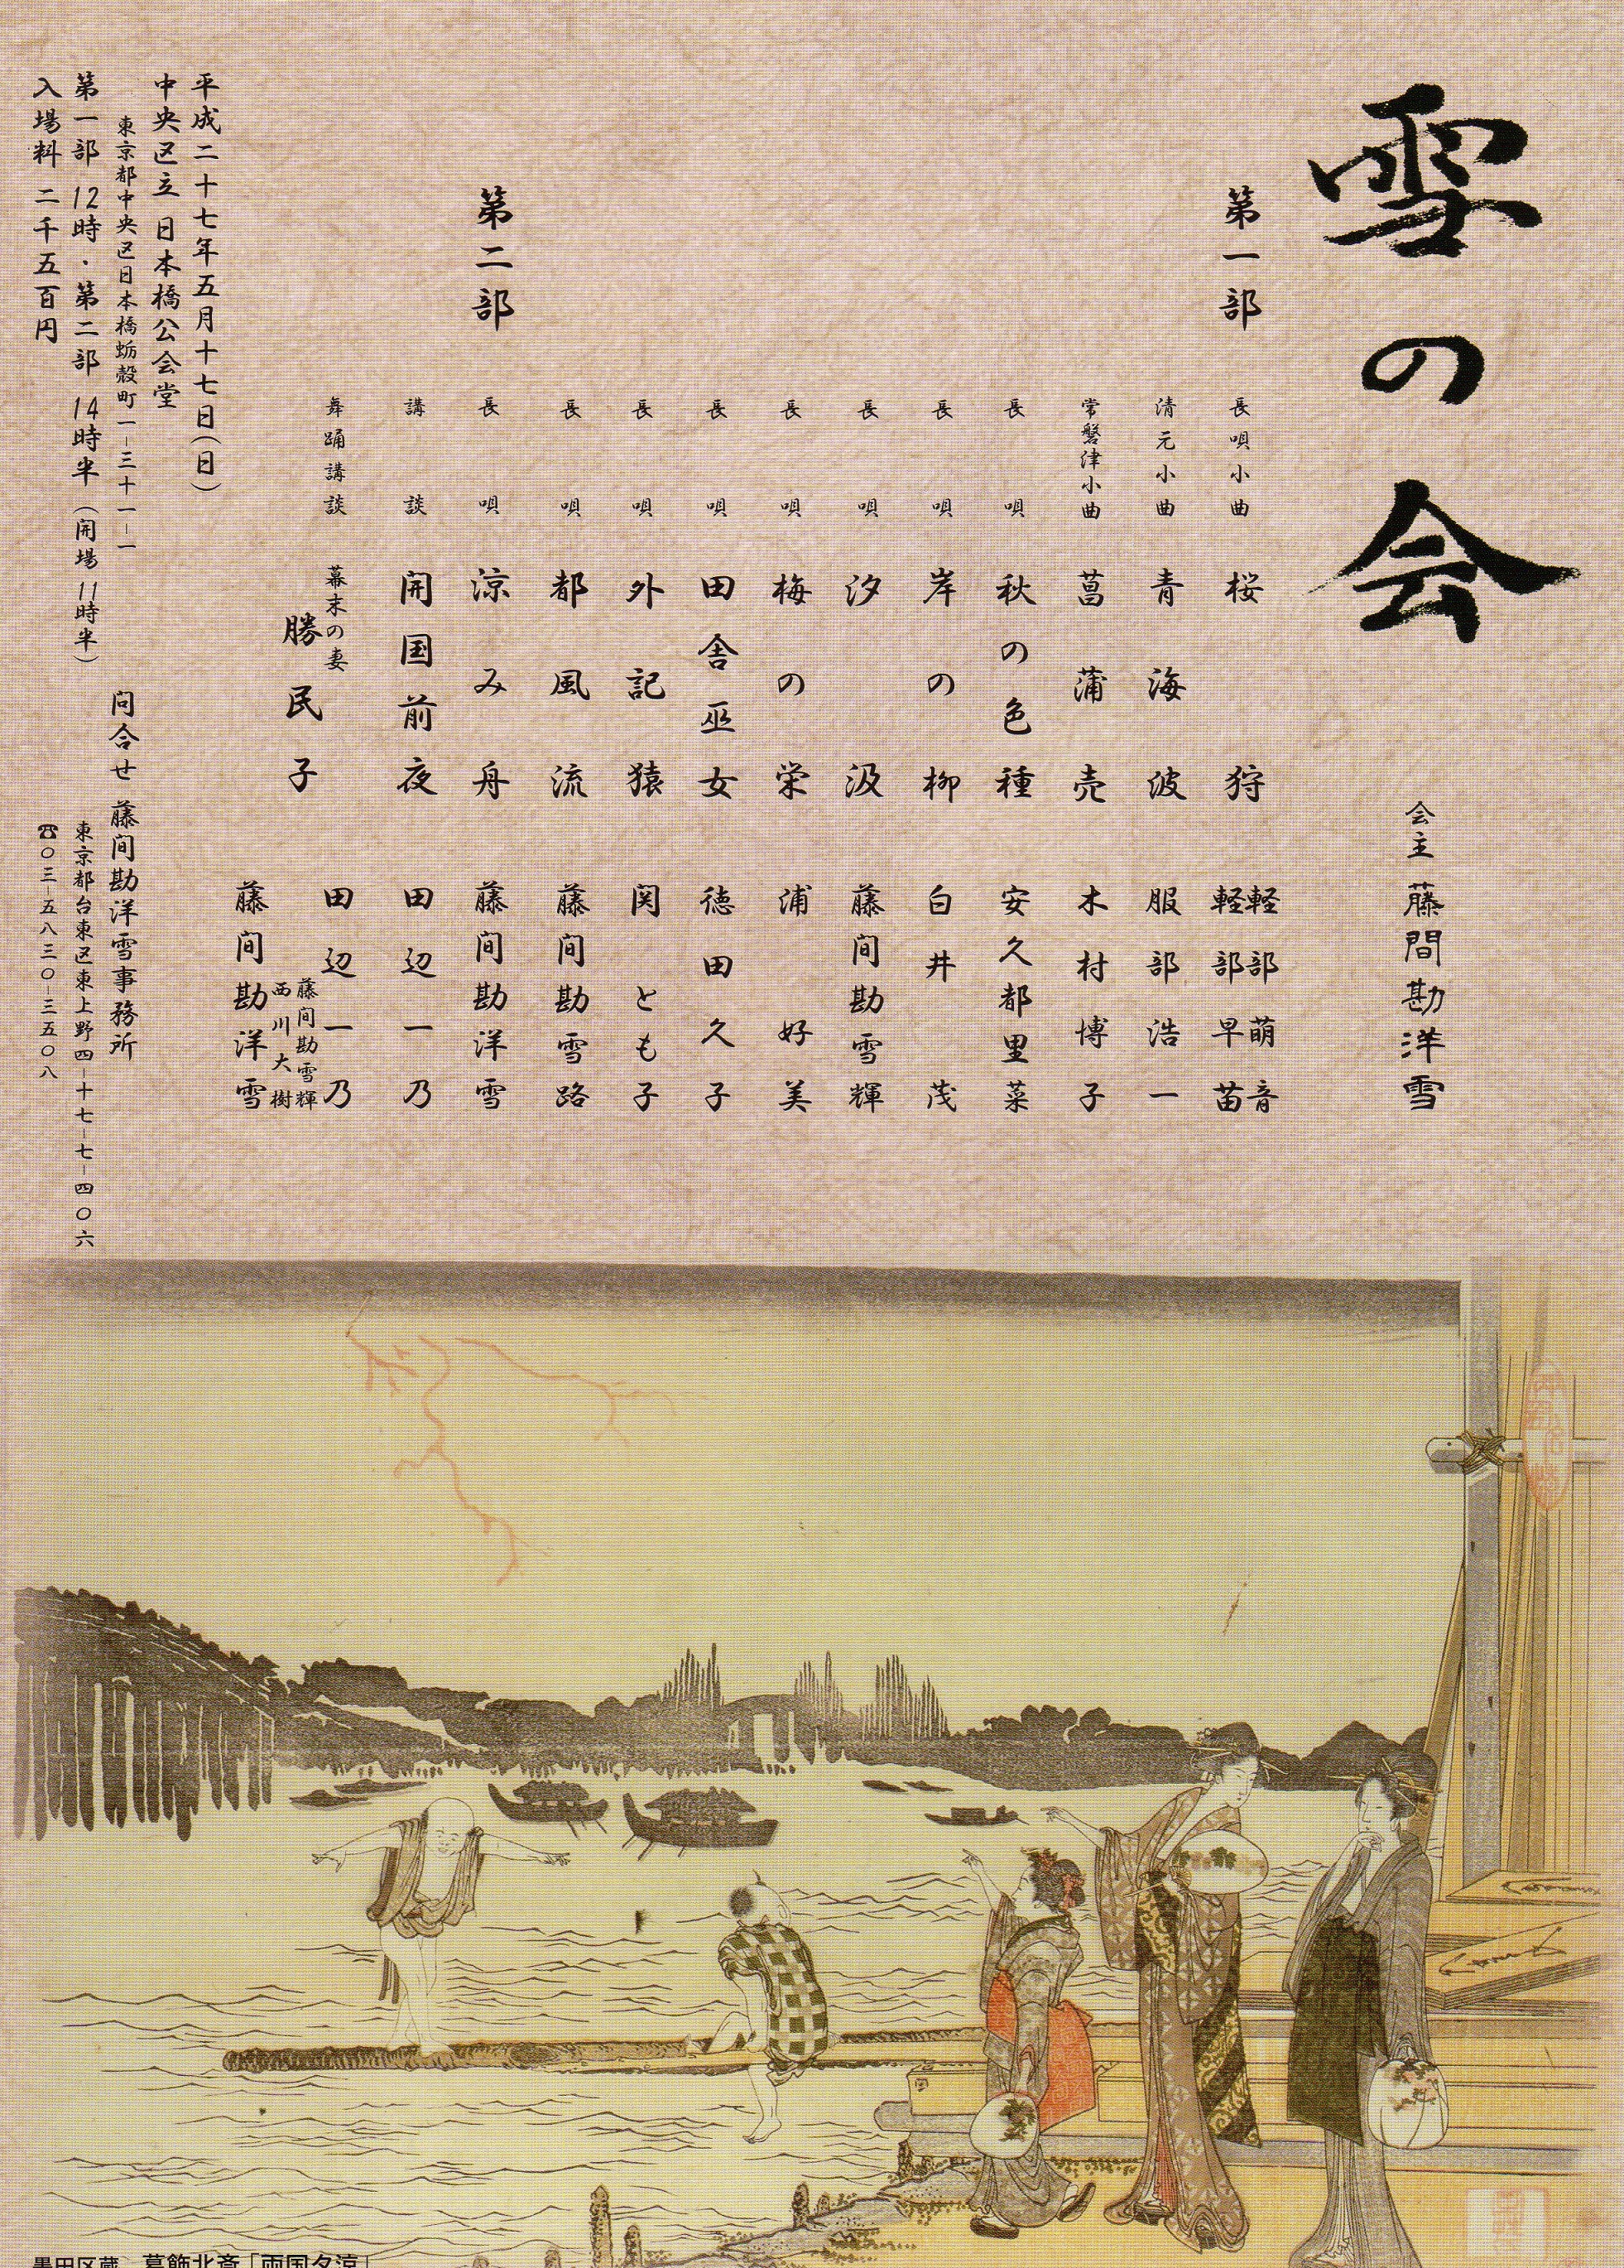 雪の会
会主 藤間勘洋雪
第一部
長唄小曲 桜狩 軽部萌音 軽部早苗
清元小曲 青海波 服部浩一
常磐津小曲 菖蒲売 木村博子
長唄 秋の色種 安久都里菜
長唄 岸の柳 白井茂
長唄 汐汲 藤間勘雪輝
長唄 梅の栄 浦好美
長唄 田舎巫女 徳田久子
長唄 外記猿 関とも子
長唄 都風流 藤間勘雪路
第二部
長唄 涼み舟 藤間勘洋雪
講談 開国前夜 田辺一乃
舞踊講談 幕末の妻 勝民子 田辺一乃
藤間勘雪輝
西川大樹
藤間勘洋雪
平成二十七年五月十七日(日)
中央区立 日本橋公会堂
東京都中央区日本橋蛎殻町一-三十一-一
第一部 12時・第二部 14時半 (開場 11時半)
入場料 二千五百円
問合せ 藤間勘洋雪事務所
東京都台東区東上野四-十七-七-四〇六
☎〇三-五八三〇-三五〇八
墨田区蔵 葛飾北斎「両国夕涼」